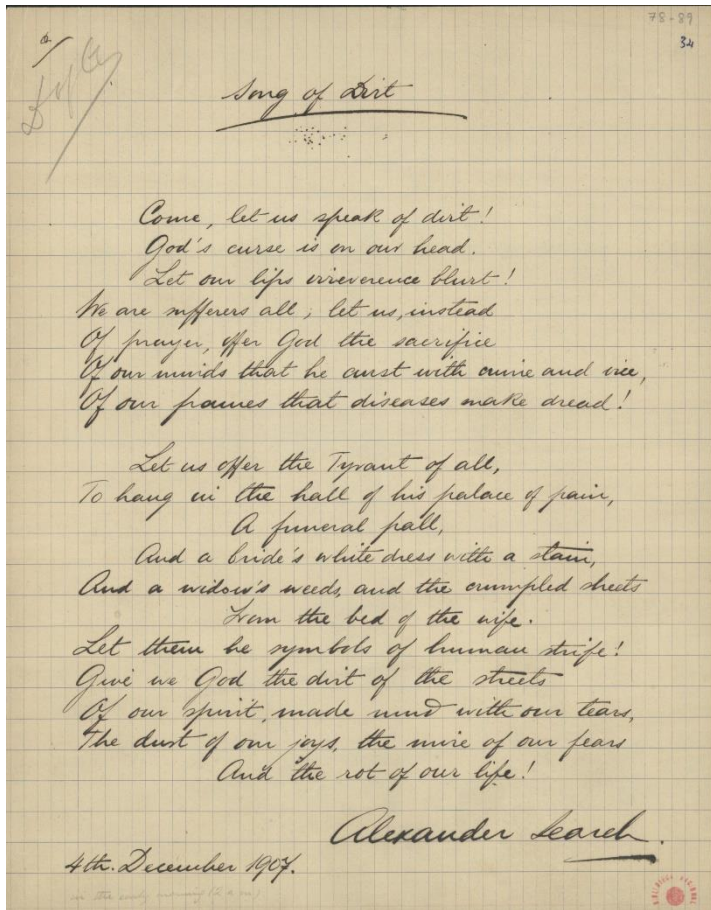 78-89
34
Song of Dirt
Come, let us speak of dirt!
God's curse is on our head.
Let our lips irreverence blurt!
We are sufferers all; let us, instead
Of prayer, offer God the sacrifice
Of our minds that he curst with crime and vice,
Of our frames that diseases make dread!
Let us offer the Tyrant of all,
To hang in the hall of his palace of pain,
A funeral pall,
And a bride's white dress with a stain,
And a widow's weeds, and the crumpled sheets
From the bed of the wife.
Let them be symbols of human strife!
Give we God the dirt of the streets
Of our spirit, made mud with our tears,
The dust of our joys, the mire of our fears
And the rot of our life!
Alexander Search.
4th. December 1907.
in the early morning (2 a.m.)